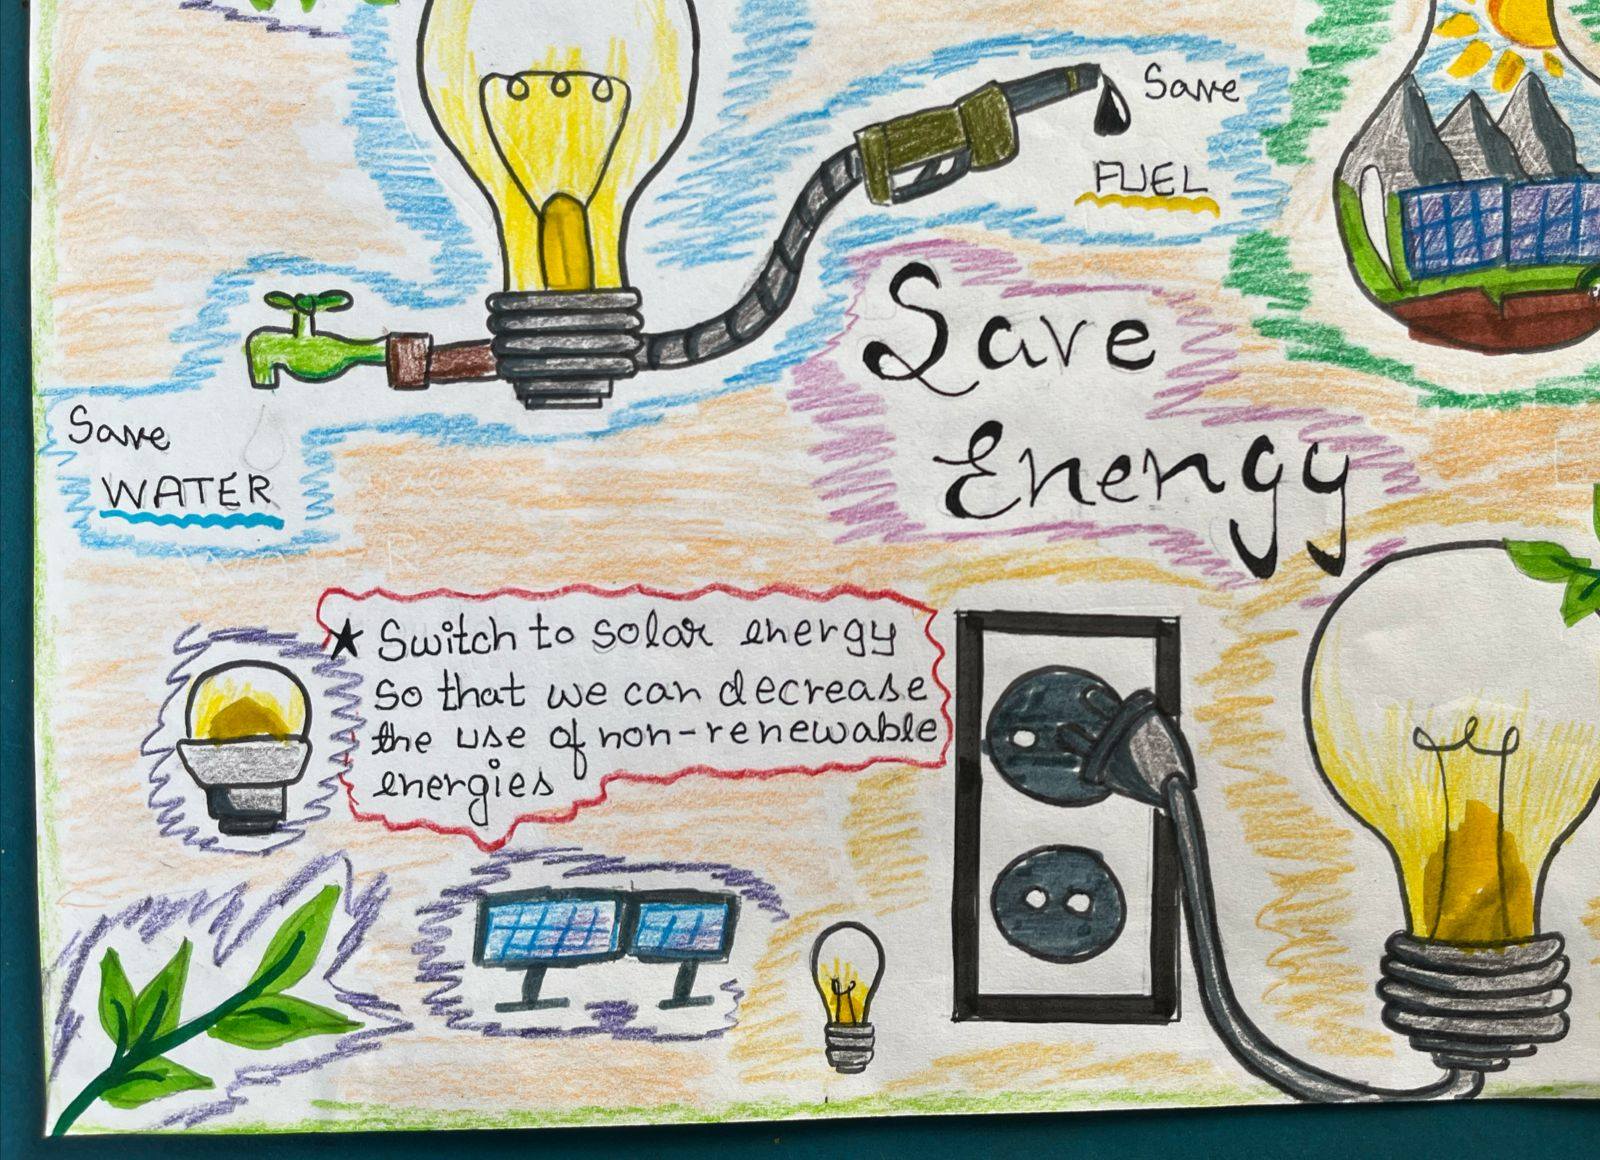 Save
FUEL
Save
Energy
Save
WATER
★ Switch to solar energy
so that we can decrease
the use of non-renewable
energies